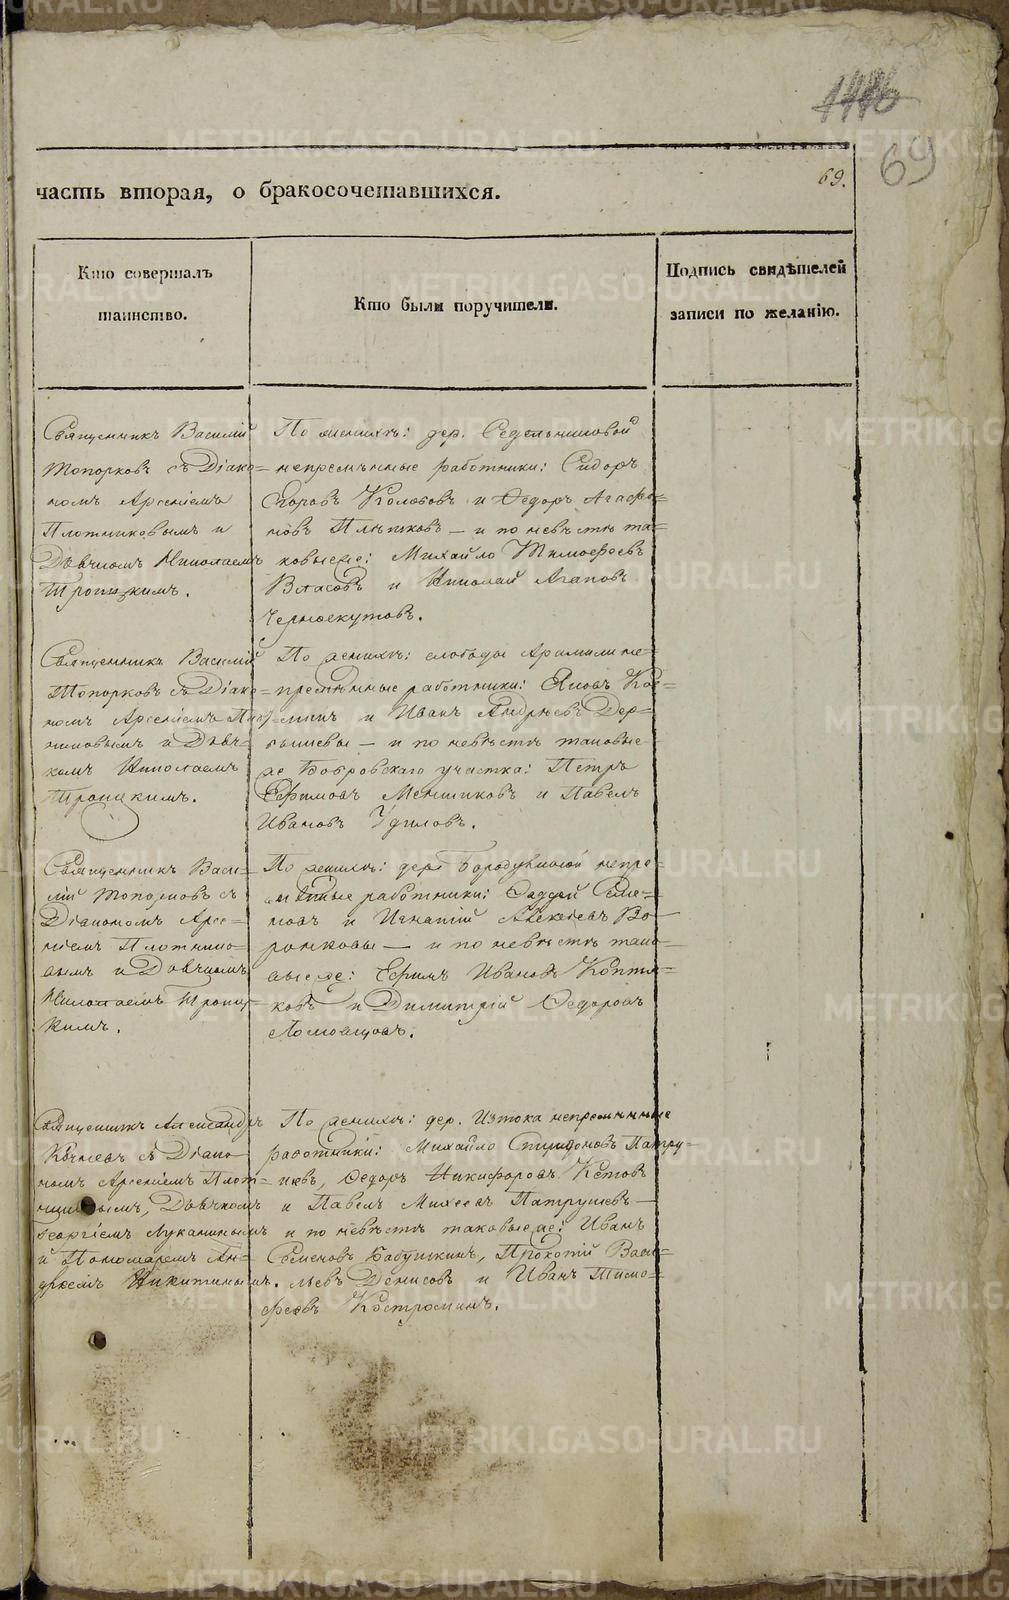 69
69.
часть вторая, о бракосочетавшихся.
Кто совершалъ
таинство.
Кто были поручители.
Подпись свидѣтелей
записи по желанію.
Священникъ Василій
Топорковъ съ Діако-
номъ Арсеніемъ
Плотниковымъ и
Дьячкомъ Николаемъ
Троицкимъ.
По женихѣ: дер. Седельниковой
непремѣнные работники: Сидоръ
Егоровъ Колобовъ и Ѳедоръ Агафо-
новъ Плѣшковъ — и по невѣстѣ та-
ковые же: Михайло Тимофеевъ
Власовъ и Николай Агаповъ
Черноскутовъ.
Священникъ Василій
Топорковъ съ Діако-
номъ Арсеніемъ Плот-
никовымъ и Дьяч-
комъ Николаемъ
Троицкимъ.
По женихѣ: слободы Арамили не-
премѣнные работники: Яковъ
и Иванъ Андрѣевъ Дер-
нышевы — и по невѣстѣ таковые
же Бобровскаго участка: Петръ
Ефимовъ Меншиковъ и Павелъ
Ивановъ
Священникъ Васи-
лій Топорковъ съ
Діакономъ Арсе-
ніемъ Плотнико-
вымъ и Дьячкомъ
Николаемъ Троиц-
кимъ.
По женихѣ: дер. Бородулиной непре-
мѣнные работники: Фаддей Семе-
новъ и Игнатій Алексѣевъ Во-
ронковы — и по невѣстѣ тако-
вые же: Ефимъ Ивановъ Коптя-
ковъ и Димитрій Ѳедоровъ
Ломовцовъ.
Священникъ Александръ
съ Діако-
номъ Арсеніемъ Плот-
никовымъ, Дьячкомъ
Георгіемъ Луканинымъ
и Пономаремъ Ан-
дреемъ Никитинымъ.
По женихѣ: дер. Истока непремѣнные
работники: Михайло Спиридоновъ Патру-
шевъ, Ѳедоръ Никифоровъ Кетовъ
и Павелъ Михеевъ Патрушевъ —
и по невѣстѣ таковые же: Иванъ
Семеновъ Бабушкинъ, Прокопій Васи-
льевъ Денисовъ и Иванъ Тимо-
феевъ Костроминъ.
METRIKI.GASO-URAL.RU